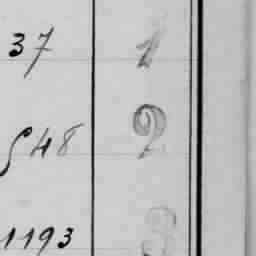 37 1
548 2
1193 3